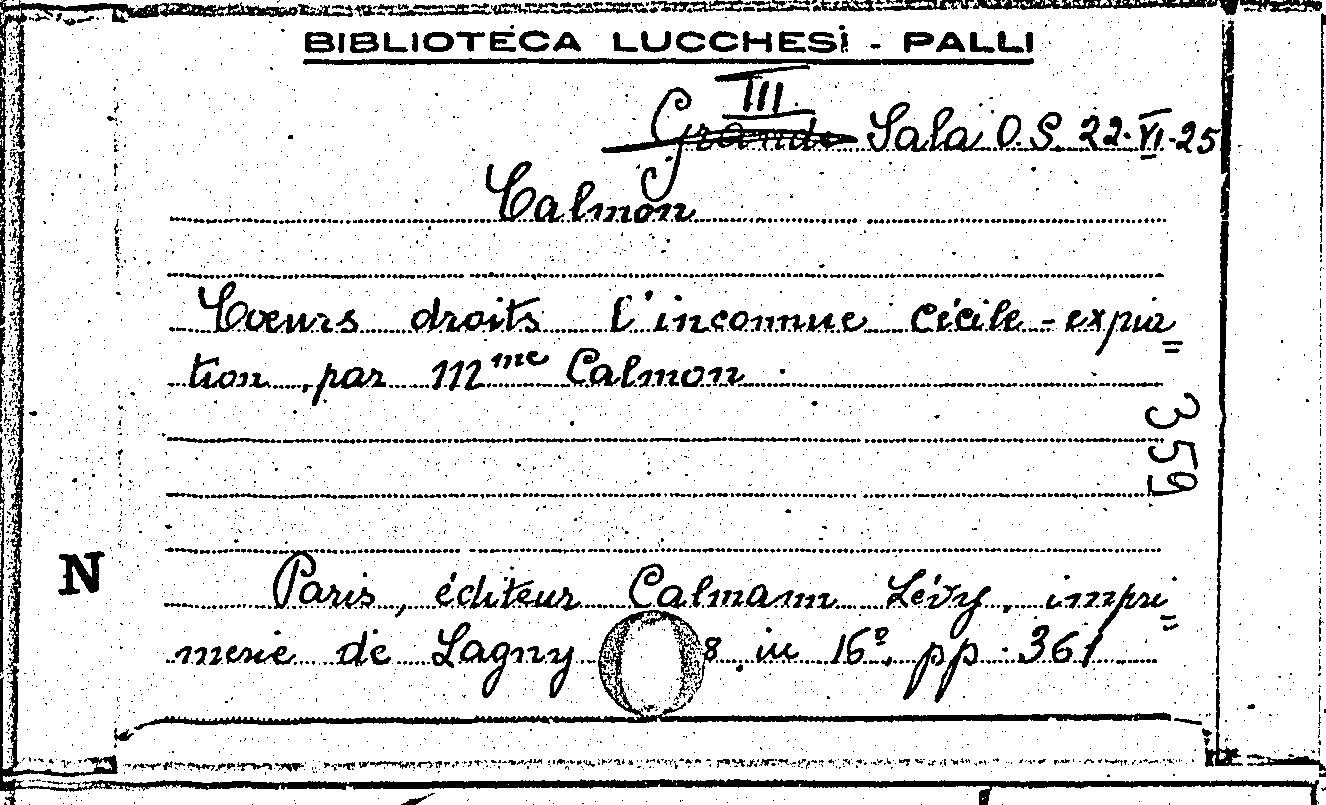 BIBLIOTECA LUCCHESI - PALLI
III
Grande Sala O.S. 22.VI.25
Calmon
Cœurs droits l'inconnue Cécile - expia=
tion, par Mme Calmon
359
N
Paris, éditeur Calmann Lévy, impri=
merie de Lagny 8. in 16º. pp. 361